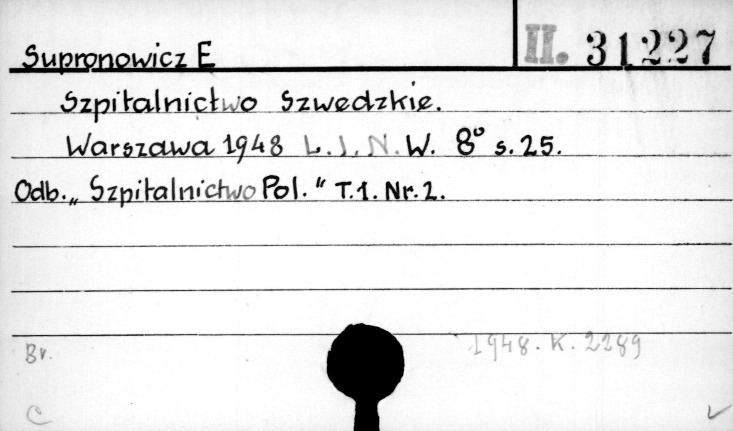 Supronowicz E II. 31227
Szpitalnictwo Szwedzkie.
Warszawa 1948 L.I.N.W. 8° s.25.
Odb. „Szpitalnictwo Pol." T.1. Nr.2.
Br. 1948.K.2289
C